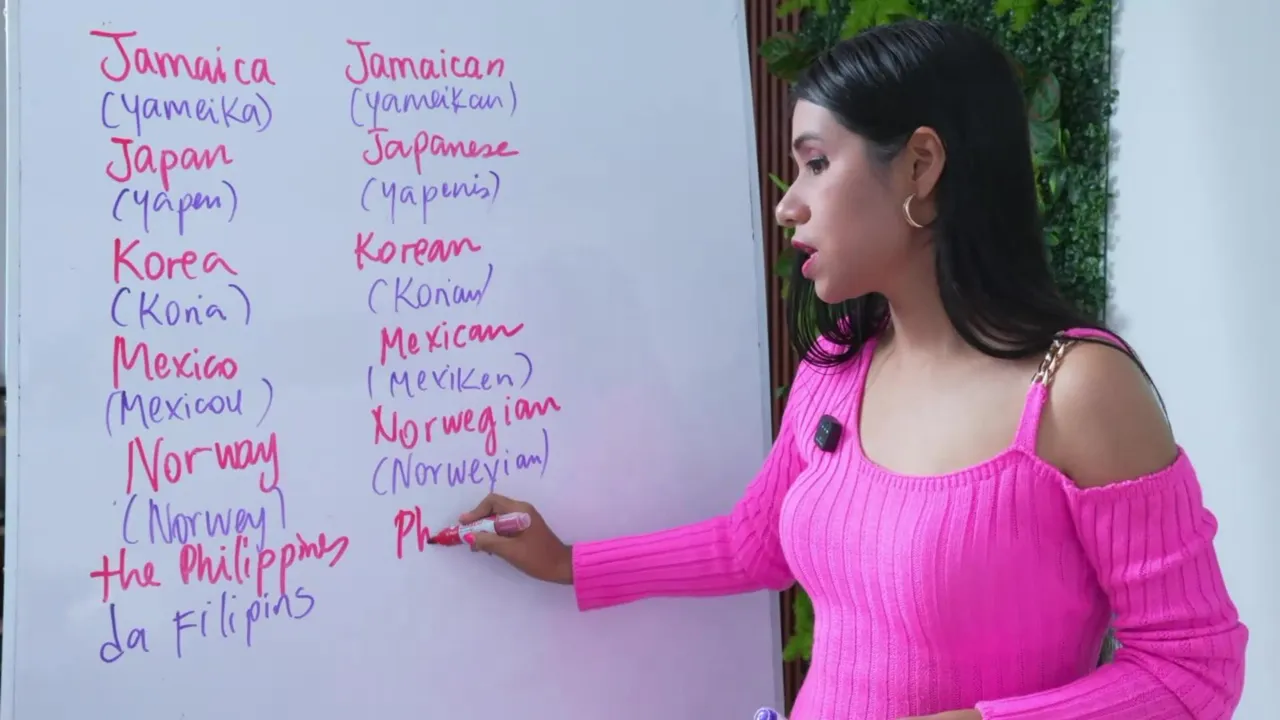 Jamaica Jamaican
(Yameika) (yameikan)
Japan Japanese
(yapen) (yapenis)
Korea Korean
(Koria) (Korian)
Mexico Mexican
(Mexicou) (Mexiken)
Norway Norwegian
(Norwey) (Norweyian)
the Philippines Ph
da Filipins